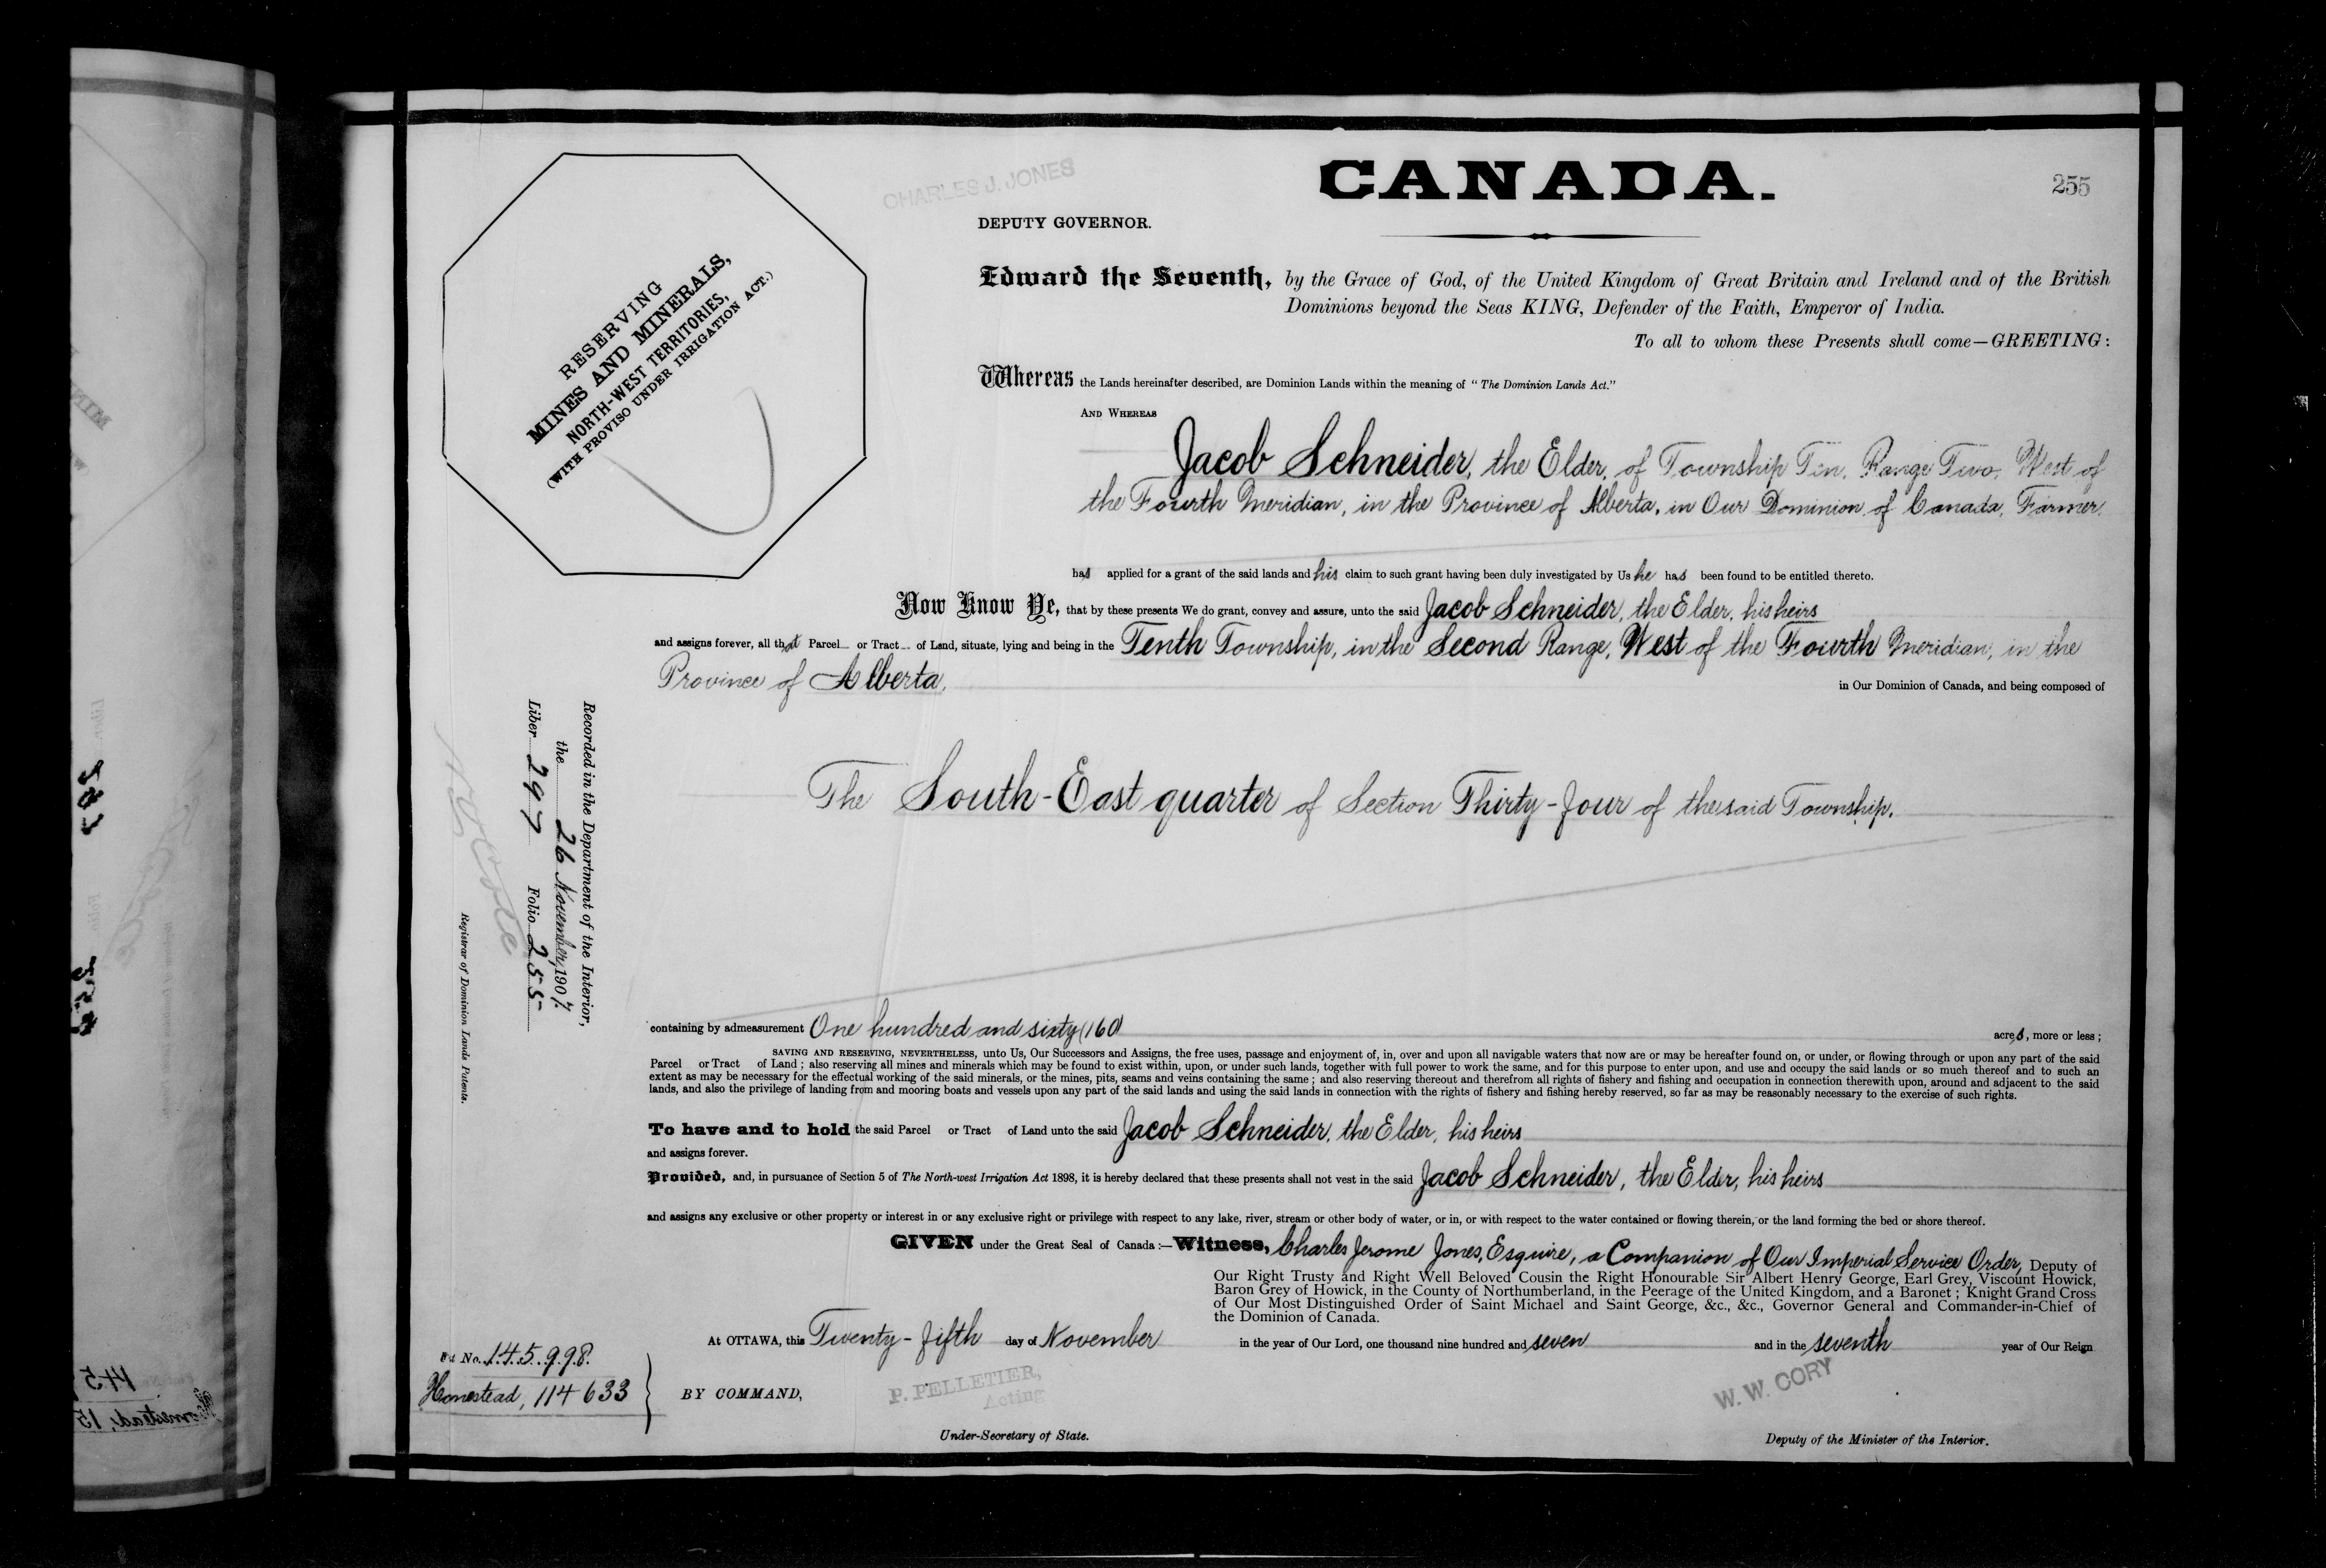 CHARLES J. JONES
CANADA.
255
DEPUTY GOVERNOR.
RESERVING
MINES AND MINERALS,
NORTH-WEST TERRITORIES,
(WITH PROVISO UNDER IRRIGATION ACT.)
Edward the Seventh, by the Grace of God, of the United Kingdom of Great Britain and Ireland and of the British
Dominions beyond the Seas KING, Defender of the Faith, Emperor of India.
To all to whom these Presents shall come—GREETING:
Whereas the Lands hereinafter described, are Dominion Lands within the meaning of "The Dominion Lands Act."
AND WHEREAS
Jacob Schneider, the Elder, of Township Ten, Range Two, West of
the Fourth Meridian, in the Province of Alberta, in Our Dominion of Canada, Farmer,
has applied for a grant of the said lands and his claim to such grant having been duly investigated by Us he has been found to be entitled thereto.
Now Know Ye, that by these presents We do grant, convey and assure, unto the said Jacob Schneider, the Elder, his heirs
and assigns forever, all that Parcel or Tract of Land, situate, lying and being in the Tenth Township, in the Second Range, West of the Fourth Meridian, in the
Province of Alberta, in Our Dominion of Canada, and being composed of
The South-East quarter of Section Thirty-four of the said Township.
Recorded in the Department of the Interior,
the 26 November, 1907.
Liber 297 Folio 255
Registrar of Dominion Lands Patents.
containing by admeasurement One hundred and sixty (160) acres, more or less;
SAVING AND RESERVING, NEVERTHELESS, unto Us, Our Successors and Assigns, the free uses, passage and enjoyment of, in, over and upon all navigable waters that now are or may be hereafter found on, or under, or flowing through or upon any part of the said
Parcel or Tract of Land; also reserving all mines and minerals which may be found to exist within, upon, or under such lands, together with full power to work the same, and for this purpose to enter upon, and use and occupy the said lands or so much thereof and to such an
extent as may be necessary for the effectual working of the said minerals, or the mines, pits, seams and veins containing the same; and also reserving thereout and therefrom all rights of fishery and fishing and occupation in connection therewith upon, around and adjacent to the said
lands, and also the privilege of landing from and mooring boats and vessels upon any part of the said lands and using the said lands in connection with the rights of fishery and fishing hereby reserved, so far as may be reasonably necessary to the exercise of such rights.
To have and to hold the said Parcel or Tract of Land unto the said Jacob Schneider, the Elder, his heirs
and assigns forever.
Provided, and, in pursuance of Section 5 of The North-west Irrigation Act 1898, it is hereby declared that these presents shall not vest in the said Jacob Schneider, the Elder, his heirs
and assigns any exclusive or other property or interest in or any exclusive right or privilege with respect to any lake, river, stream or other body of water, or in, or with respect to the water contained or flowing therein, or the land forming the bed or shore thereof.
GIVEN under the Great Seal of Canada:—Witness, Charles Jerome Jones, Esquire, a Companion of Our Imperial Service Order, Deputy of
Our Right Trusty and Right Well Beloved Cousin the Right Honourable Sir Albert Henry George, Earl Grey, Viscount Howick,
Baron Grey of Howick, in the County of Northumberland, in the Peerage of the United Kingdom, and a Baronet; Knight Grand Cross
of Our Most Distinguished Order of Saint Michael and Saint George, &c., &c., Governor General and Commander-in-Chief of
the Dominion of Canada.
At OTTAWA, this Twenty-fifth day of November in the year of Our Lord, one thousand nine hundred and seven and in the seventh year of Our Reign
No. 145998.
Homestead, 114633
BY COMMAND,
P. PELLETIER,
Acting
Under-Secretary of State.
W. W. CORY
Deputy of the Minister of the Interior.